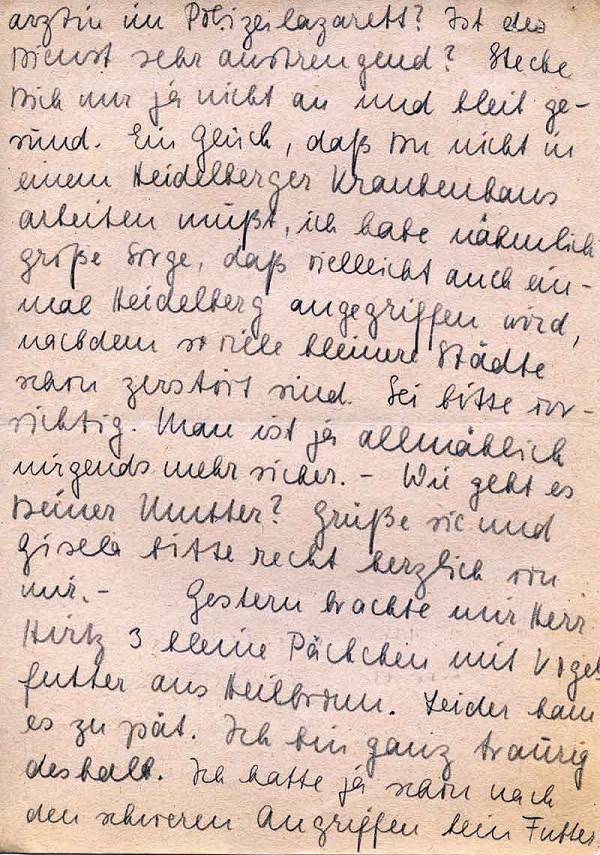 ärztin im Polizeilazarett? Ist der
Dienst sehr anstrengend? Stecke
Dich nur ja nicht an und bleib ge-
sund. Ein Glück, daß Du nicht in
einem Heidelberger Krankenhaus
arbeiten mußt, ich habe nähmlich
große Sorge, daß vielleicht auch ein-
mal Heidelberg angegriffen wird,
nachdem so viele kleinere Städte
schon zerstört sind. Sei bitte vor-
sichtig. Man ist ja allmählich
nirgends mehr sicher. – Wie geht es
Deiner Mutter? Grüße sie und
Gisela bitte recht herzlich von
mir. – Gestern brachte mir Herr
Hirtz 3 kleine Päckchen mit Vogel
futter aus Heilbronn. Leider kam
es zu spät. Ich bin ganz traurig
deshalb. Ich hatte ja schon nach
den schweren Angriffen kein Futter